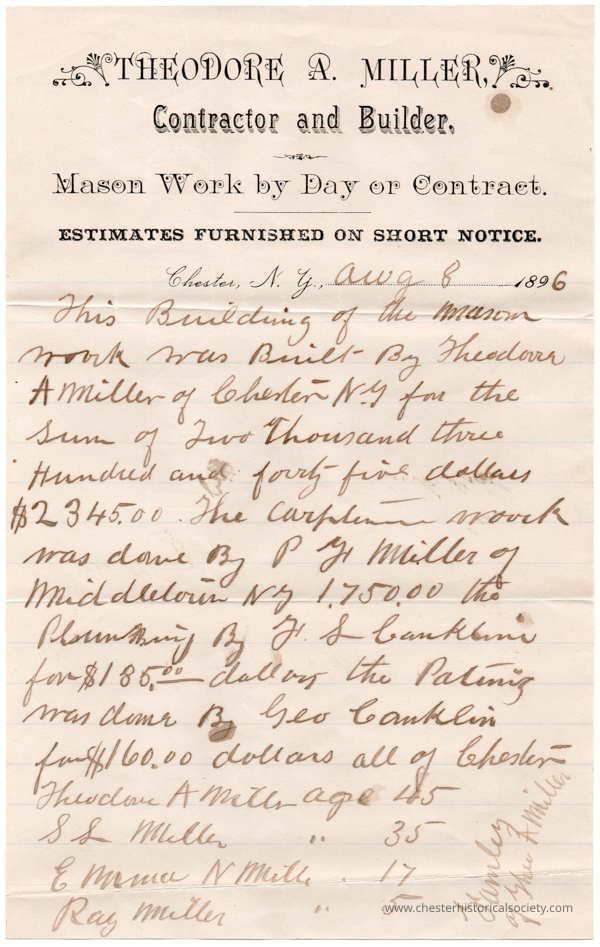 THEODORE A. MILLER,
Contractor and Builder.
Mason Work by Day or Contract.
ESTIMATES FURNISHED ON SHORT NOTICE.
Chester, N. Y., Aug 8 1896
This Building of the mason
woork was Built By Theodore
A Miller of Chester N.Y for the
Sum of Two Thousand three
Hundred and foorty five dollars
$2345.00. The Carpters woork
was done By P Miller of
Middletown NY 1,750.00 the
Plumbing By F. S Canklin
for $185.00 dollars the Pating
was done By Geo Canklin
for $160.00 dollars all of Chester
Theodore A Miller age 45
S L Miller " 35
Emma N Mille . 17
Ray Miller " 5
Famley
of Theo A Miller
www.chesterhistoricalsociety.com